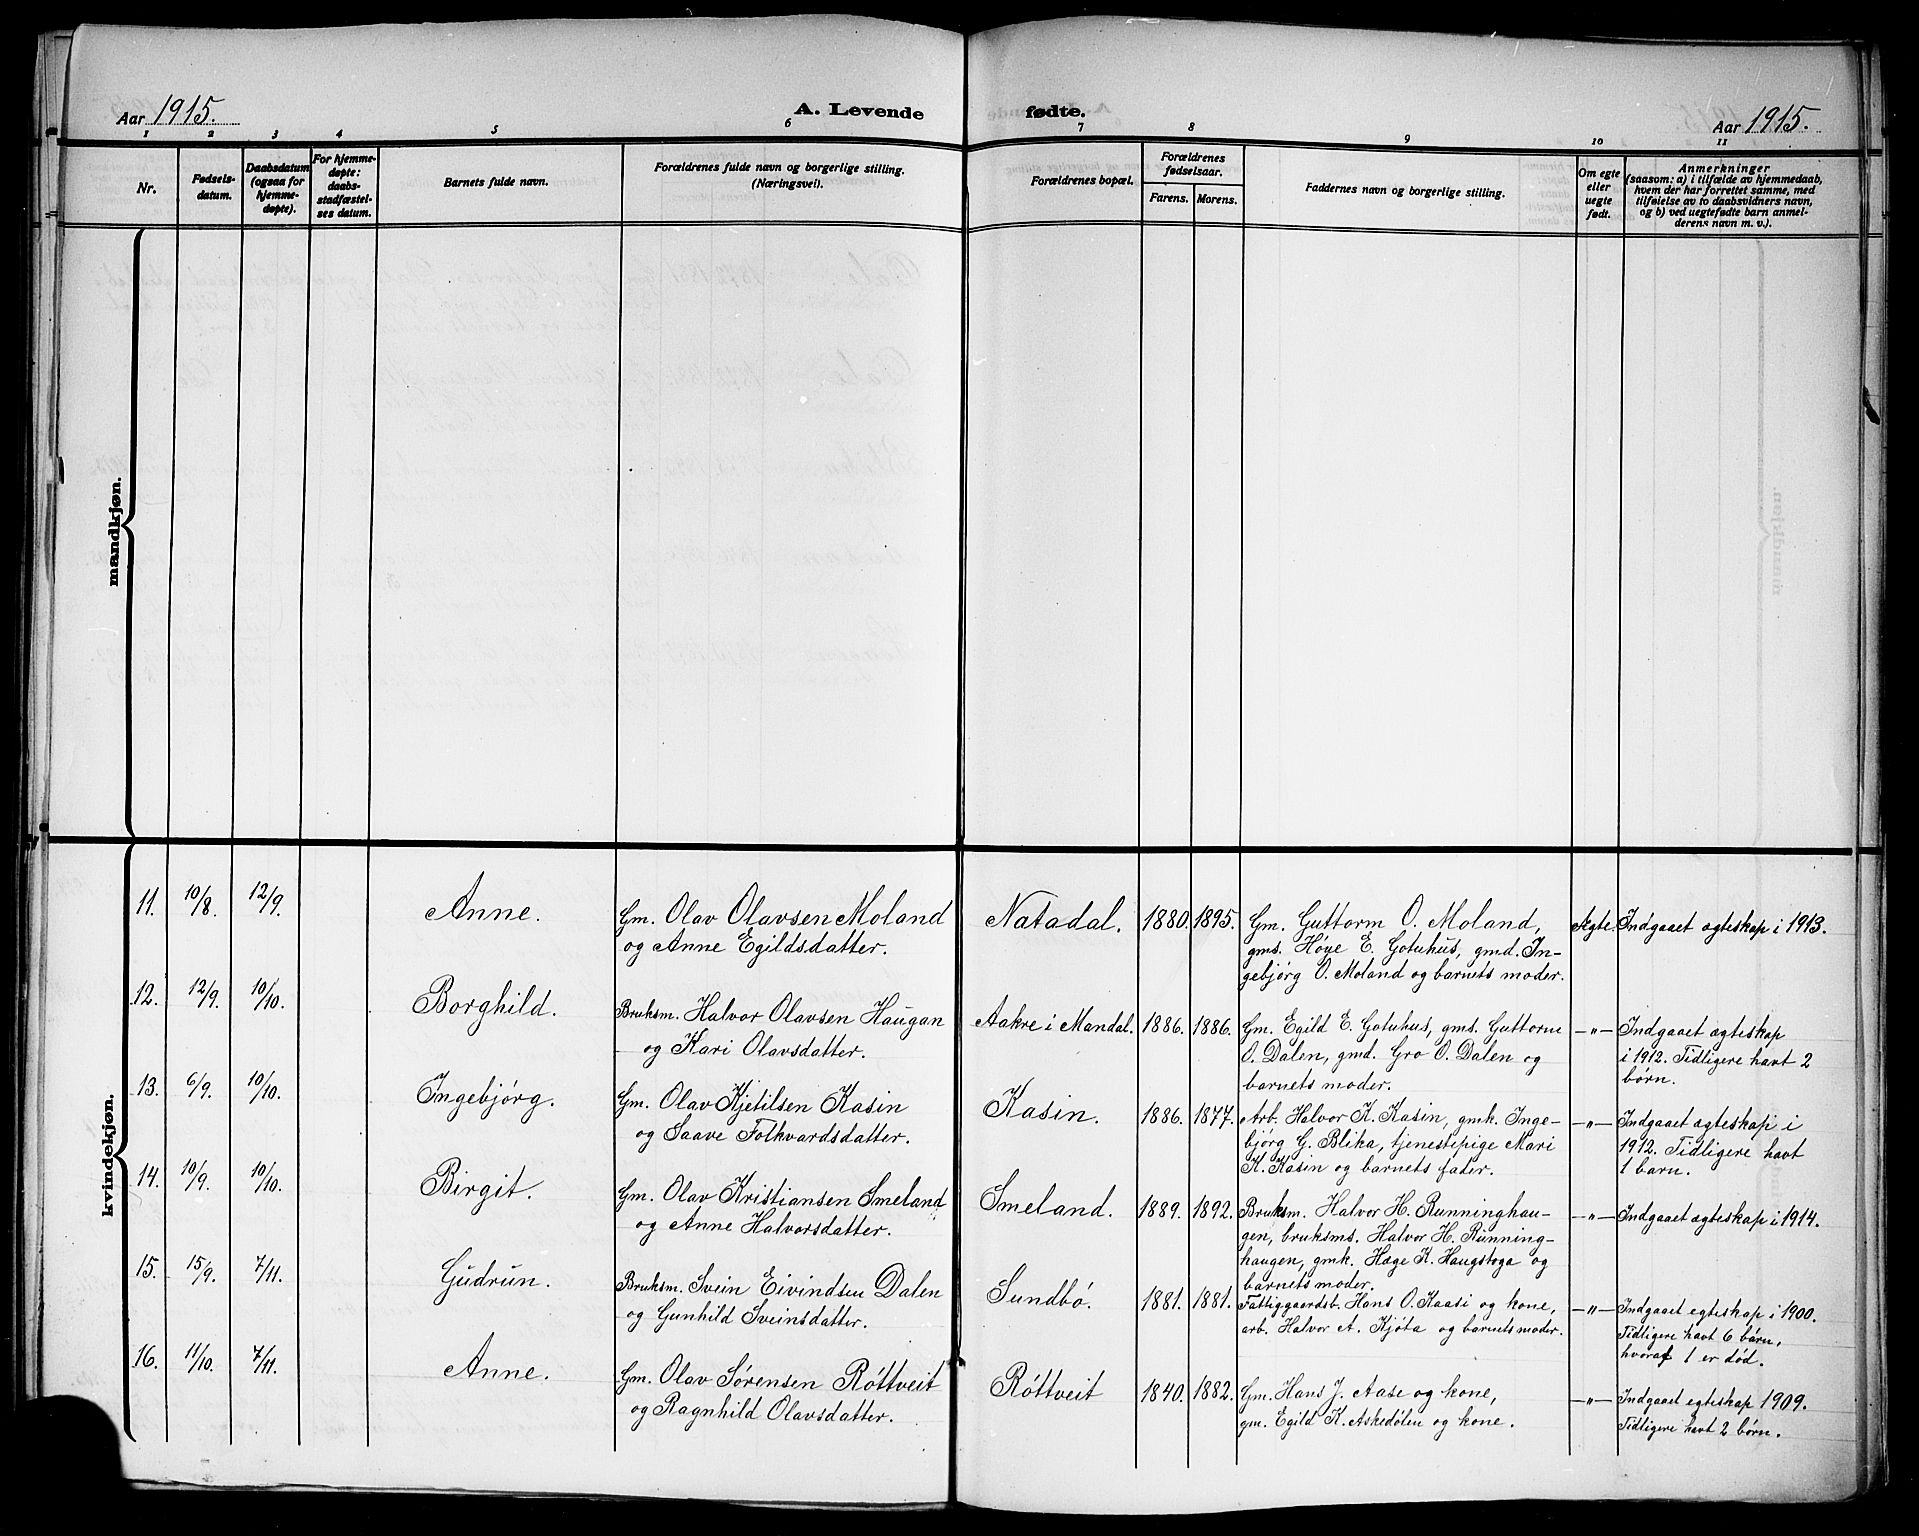 Aar 1915.
A. Levende fødte.
Aar 1915.
1 2 3 4 5 6 7 8 9 10 11
Nr.
Fødsels-
datum.
Daabsdatum
(ogsaa for
hjemme-
døpte).
For hjemme-
døpte:
daabs-
stadfæstel-
ses datum.
Barnets fulde navn.
Forældrenes fulde navn og borgerlige stilling.
(Næringsvei).
Forældrenes bopæl.
Forældrenes
fødselsaar.
Farens. Morens.
Faddernes navn og borgerlige stilling.
Om egte
eller
uegte
født.
Anmerkninger
(saasom: a) i tilfælde av hjemmedaab,
hvem der har forrettet samme, med
tilføielse av to daabsvidners navn,
og b) ved uegtefødte barn anmel-
derens navn m. v.).
mandkjøn.
kvindekjøn.
11. 10/8. 12/9. Anne.
Gm. Olav Olavsen Moland
og Anne Egildsdatter.
Natadal. 1880. 1895.
Gm. Guttorm O. Moland,
gms. Høye E. Gotuhus, gmd. In-
gebjörg O. Moland og barnets moder.
Ægte. Indgaaet ægteskap i 1913.
12. 12/9. 10/10. Borghild.
Bruksm. Halvor Olavsen Haugan
og Kari Olavsdatter.
Aakre i Mandal. 1886. 1886.
Gm. Egild E. Gotuhus, gms. Guttorm
O. Dalen, gmd. Gro O. Dalen og
barnets moder.
-"- Indgaaet ægteskap
i 1912. Tidligere havt 2
börn.
13. 6/9. 10/10. Ingebjörg.
Gm. Olav Kjetilsen Kasin
og Saave Folkvardsdatter.
Kasin. 1886. 1877.
Arb. Halvor K. Kasin, gmk. Inge-
björg G. Blika, tjenestepige Mari
K. Kasin og barnets fader.
-"- Indgaaet ægteskap i
1912. Tidligere havt
1 barn.
14. 10/9. 10/10. Birgit.
Gm. Olav Kristiansen Smeland
og Anne Halvorsdatter.
Smeland. 1889. 1892.
Bruksm. Halvor H. Runninghau-
gen, bruksms. Halvor H. Running-
haugen, gmk. Hæge K. Haugstoga og
barnets moder.
-"- Indgaaet ægteskap i 1914.
15. 15/9. 7/11. Gudrun.
Bruksm. Svein Eivindsen Dalen
og Gunhild Sveinsdatter.
Sundbö. 1881. 1881.
Fattiggaardsb. Hans O. Kaasi og kone,
arb. Halvor A. Kjöta og barnets moder.
-"- Indgaaet egteskap i 1900.
Tidligere havt 6 börn,
hvoraf 1 er död.
16. 11/10. 7/11. Anne.
Gm. Olav Sørensen Röttveit
og Ragnhild Olavsdatter.
Röttveit 1840. 1882.
Gm. Hans J. Aase og kone,
gm. Egild K. Askedölen og kone.
-"- Indgaaet egteskap 1909.
Tidligere havt 2 börn.